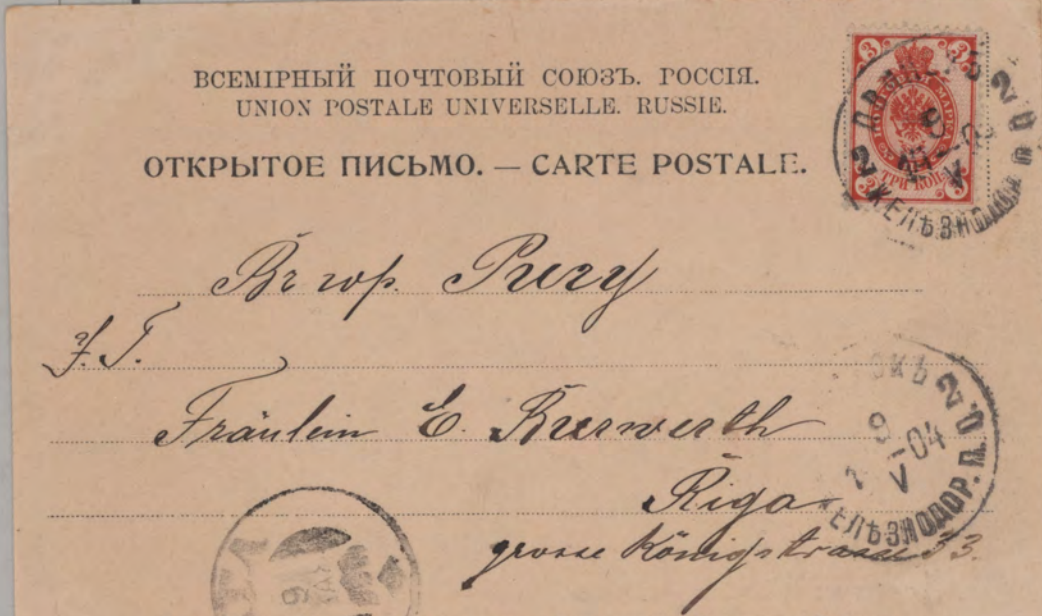 ВСЕМІРНЫЙ ПОЧТОВЫЙ СОЮЗЪ. РОССІЯ.
UNION POSTALE UNIVERSELLE. RUSSIE.
ОТКРЫТОЕ ПИСЬМО. — CARTE POSTALE.
3 3
МАРКА
ТРИ КОП.
3 3
ДВИНСКЪ 2 О
9 V
2 ЖЕЛѢЗНОДОР
Въ гор. Ригу
F. T.
Fräulein E. Burwerth
Riga
grosse Königstrasse 33.
КЪ 2 О.
9 V -04
ЕЛѢЗНОДОР. П.